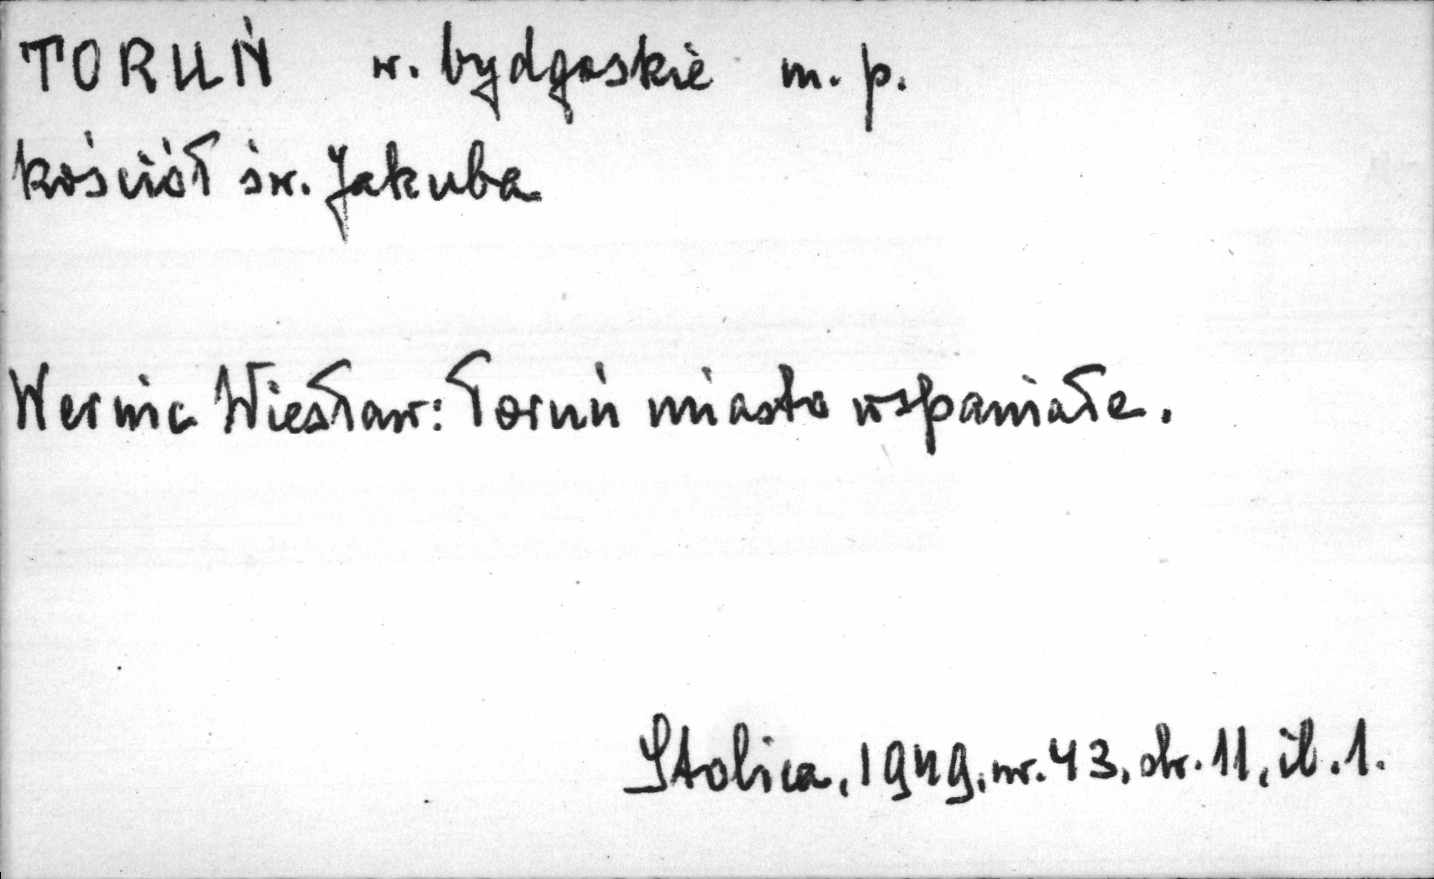 TORUŃ w. bydgoskie m. p.
kościół św. Jakuba
Wernic Wiesław: Toruń miasto wspaniałe.
Stolica, 1949, nr. 43, str. 11, il. 1.